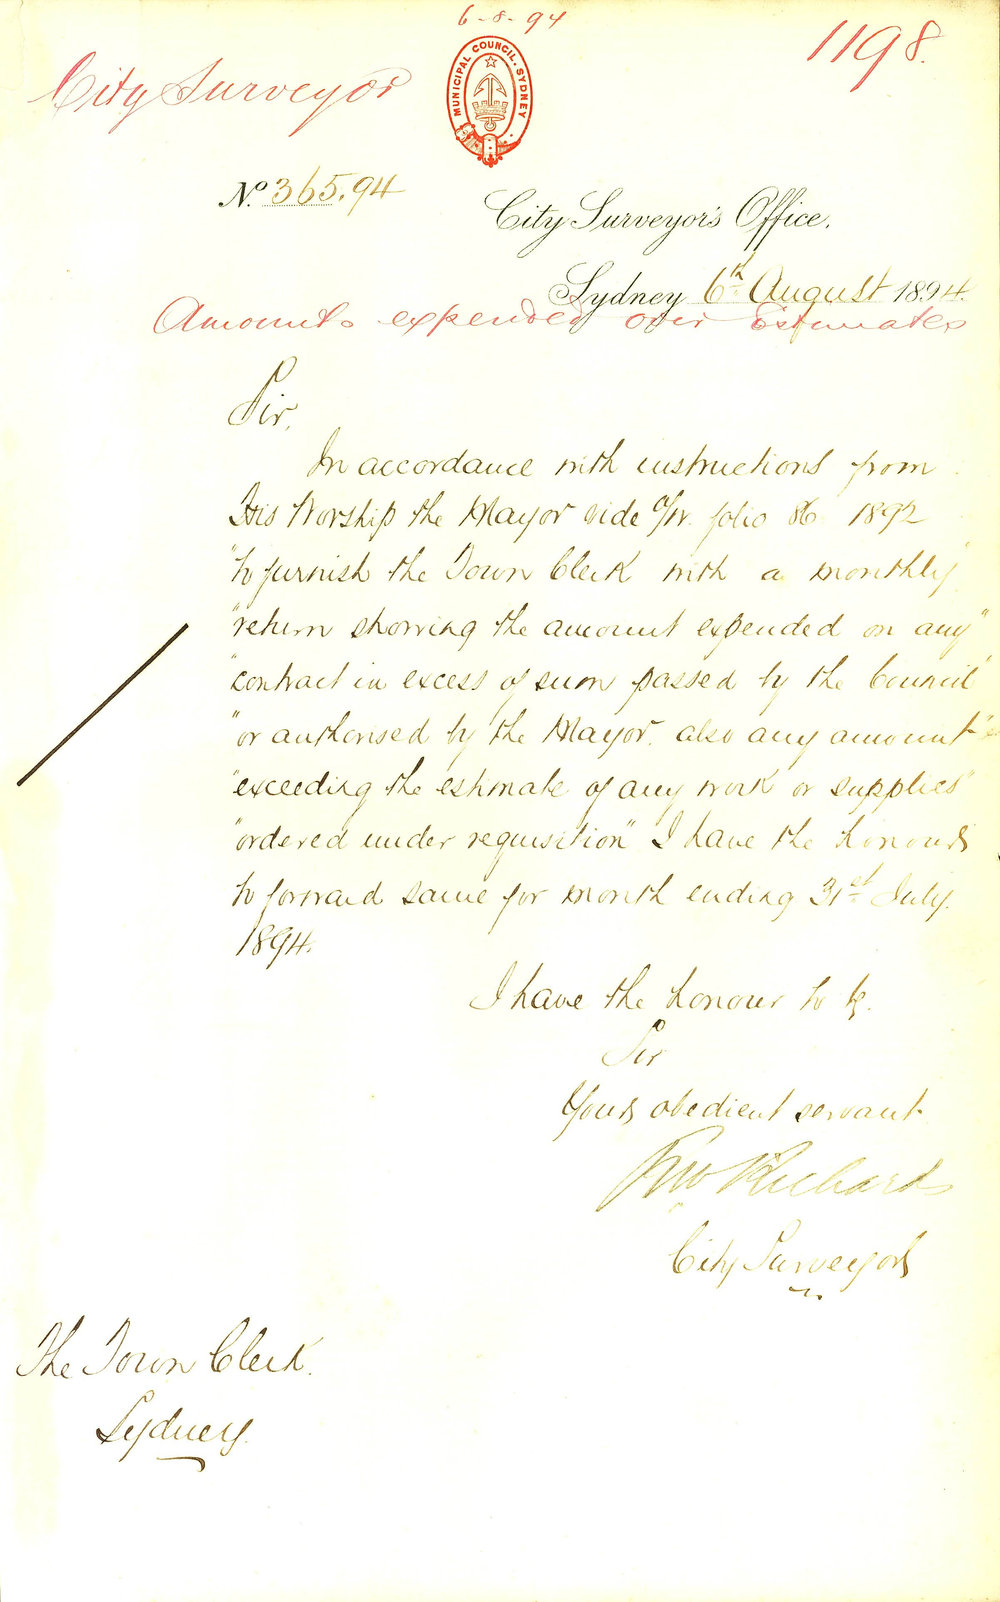 6-8-94
1198.
City Surveyor
MUNICIPAL COUNCIL. SYDNEY
No. 365.94
City Surveyor's Office.
Sydney 6th August 1894.
Amounts expended over Estimates
Sir,
In accordance with instructions from
His Worship the Mayor vide folio 86 1892
"to furnish the Town Clerk with a monthly"
"return showing the amount expended on any"
"contract in excess of sum passed by the Council"
"or authorised by the Mayor, also any amount"
"exceeding the estimate of any work or supplies"
"ordered under requisition" I have the honour
to forward same for month ending 31st July
1894.
I have the honour to be.
Sir
Yours obedient servant
Richards
City Surveyor
The Town Clerk.
Sydney.